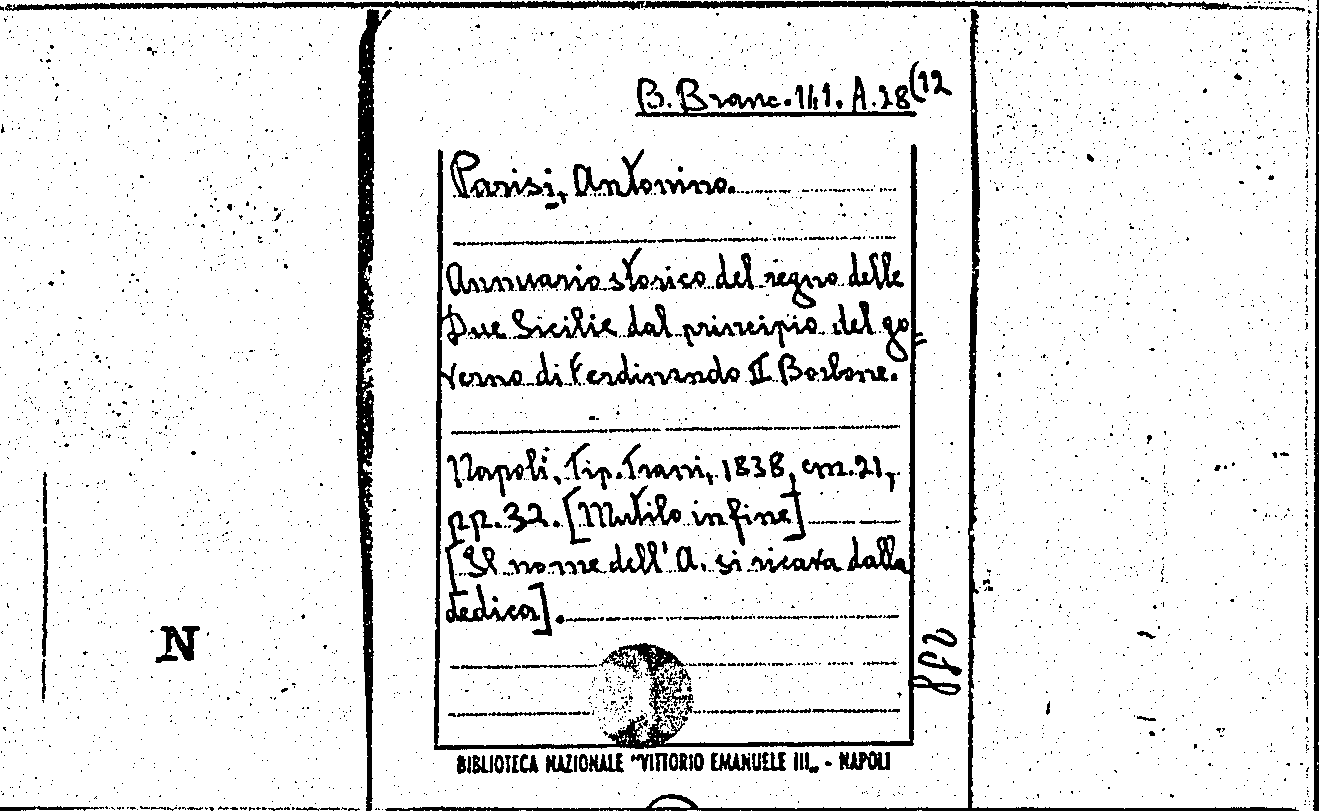 B. Branc. 141. A. 28(12
Parisi, Antonino.
Annuario storico del regno delle
Due Sicilie dal principio del go=
verno di Ferdinando II Borbone.
Napoli, Tip. Trani, 1838, cm. 21,
pp. 32. [Mutilo in fine]
[Il nome dell'A. si ricava dalla
dedica].
N
882
BIBLIOTECA NAZIONALE "VITTORIO EMANUELE III„ - NAPOLI